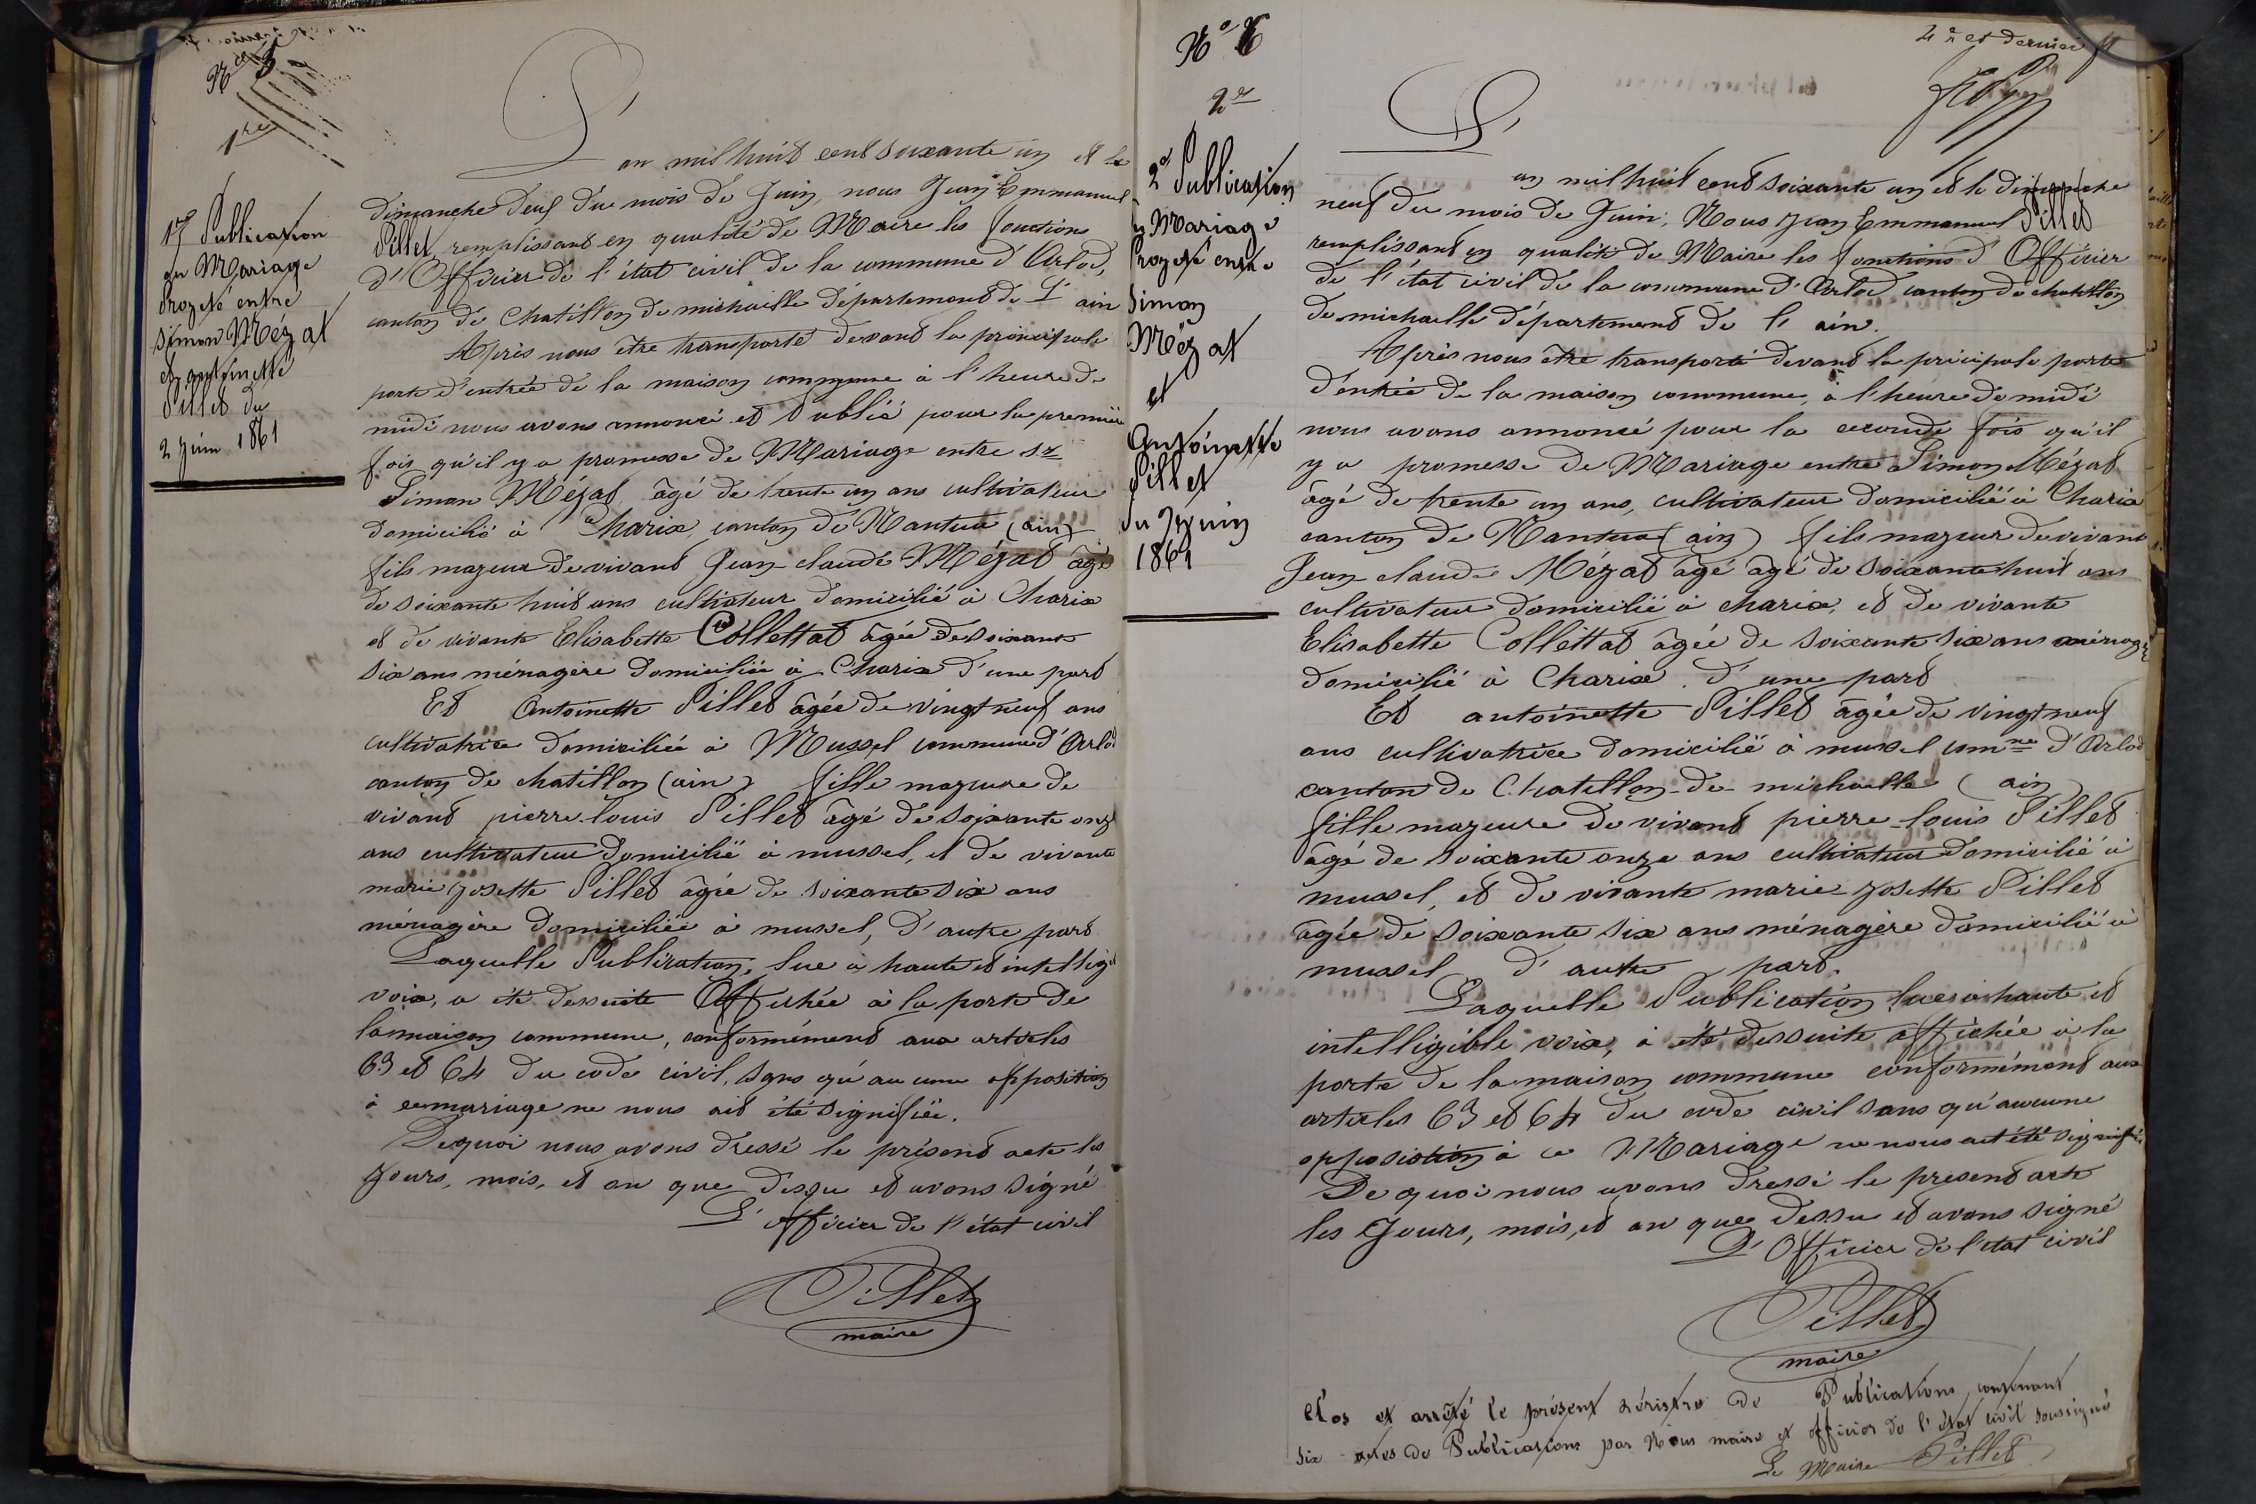 N° 5
1re
1re Publication
du Mariage
Projeté entre
Simon Mézat
et antoinette
Pillet du
2 Juin 1861
L'
an mil huit cent soixante un et le
dimanche deux du mois de Juin, nous Jean Emmanuel
Pillet remplissant en qualité de Maire les fonctions
d'Officier de l'état civil de la commune d'Arlod,
canton de Chatillon de michaille département de L'ain
Après nous être transporté devant la principale
porte d'entrée de la maison commune à l'heure de
midi nous avons annoncé et Publié pour la premiére
fois qu'il y a promesse de Mariage entre sr
Simon Mézat âgé de trente un ans cultivateur
domicilié à Charix, canton de Nantua (ain)
fils mazeur de vivant Jean claude Mézat âgé
de soixante huit ans cultivateur domicilié à Charix
et de vivante Elisabette Collettat âgée de soixante
six ans ménagère domiciliée à Charix d'une part
Et Antoinette Pillet âgée de vingt neuf ans
cultivatrice domiciliée à Mussel commune d'Arlod
canton de chatillon (ain) fille mazeure de
vivant pierre louis Pillet âgé de soixante onze
ans cultivateur domicilié à mussel, et de vivante
marie josette Pillet âgée de soixante six ans
ménagère domiciliée à mussel, d'autre part
Laquelle Publication, lue à haute et intelligi
voix, a été dessuite Affichée à la porte de
la maison commune, conformément aux articles
63 et 64 du code civil, sans qu'aucune opposition
à ce mariage ne nous ait été signifiée.
De quoi nous avons dressé le présent acte les
jours, mois, et an que dessu et avons signé
L'officier de l'état civil
Pillet
maire
N° 6
2e
2e Publication
du Mariage
Projeté entre
Simon
Mézat
et
Antoinette
Pillet
du 9 Juin
1861
4e et dernier
L'
an mil huit cent soixante un et le dimanche
neuf du mois de Juin, Nous Jean Emmanuel Pillet
remplissant en qualité de Maire les fonctions d'Officier
de l'état civil de la commune d'Arlod canton de chatillon
de michaille département de l'ain.
Après nous être transporté devant la pricipale porte
d'entrée de la maison commune, à l'heure de midi
nous avons annoncé pour la seconde fois qu'il
y a promesse de Mariage entre Simon Mézat
âgé de trente un ans, cultivateur domicilié à Charix
canton de Nantua (ain) fils mazeur de vivant
Jean claude Mézat âgé agé de soixante huit ans
cultivateur domicilié à charix, et de vivante
Elisabette Collettat âgée de soixante six ans ménagère
domicilié à Charix. d'une part
Et antoinette Pillet âgée de vingt neuf
ans cultivatrice domicilié à mussel comne d'Arlod
canton de Chatillon-de-michaille (ain)
fille mazeure de vivant pierre-louis Pillet
âgé de soixante onze ans cultivateur domicilié à
mussel, et de vivante marie josette Pillet
âgée de soixante six ans ménagère domicilié à
mussel d'autre part.
Laquelle Publication, lue à haute et
intelligible voix, à été dessuite affichée à la
porte de la maison commune conformément aux
articles 63 et 64 du code civil sans qu'aucune
opposiotion à ce Mariage ne nous ait été signifiée
De quoi nous avons dressé le present acte
les Jours, mois, et an que dessu et avons signé
L'Officier de l'etat civil
Pillet
maire
Clos et arrêté le présent régistre de Publications contenant
six actes de Publications par Nous maire et officier de l'état civil soussigné
Le Maire Pillet